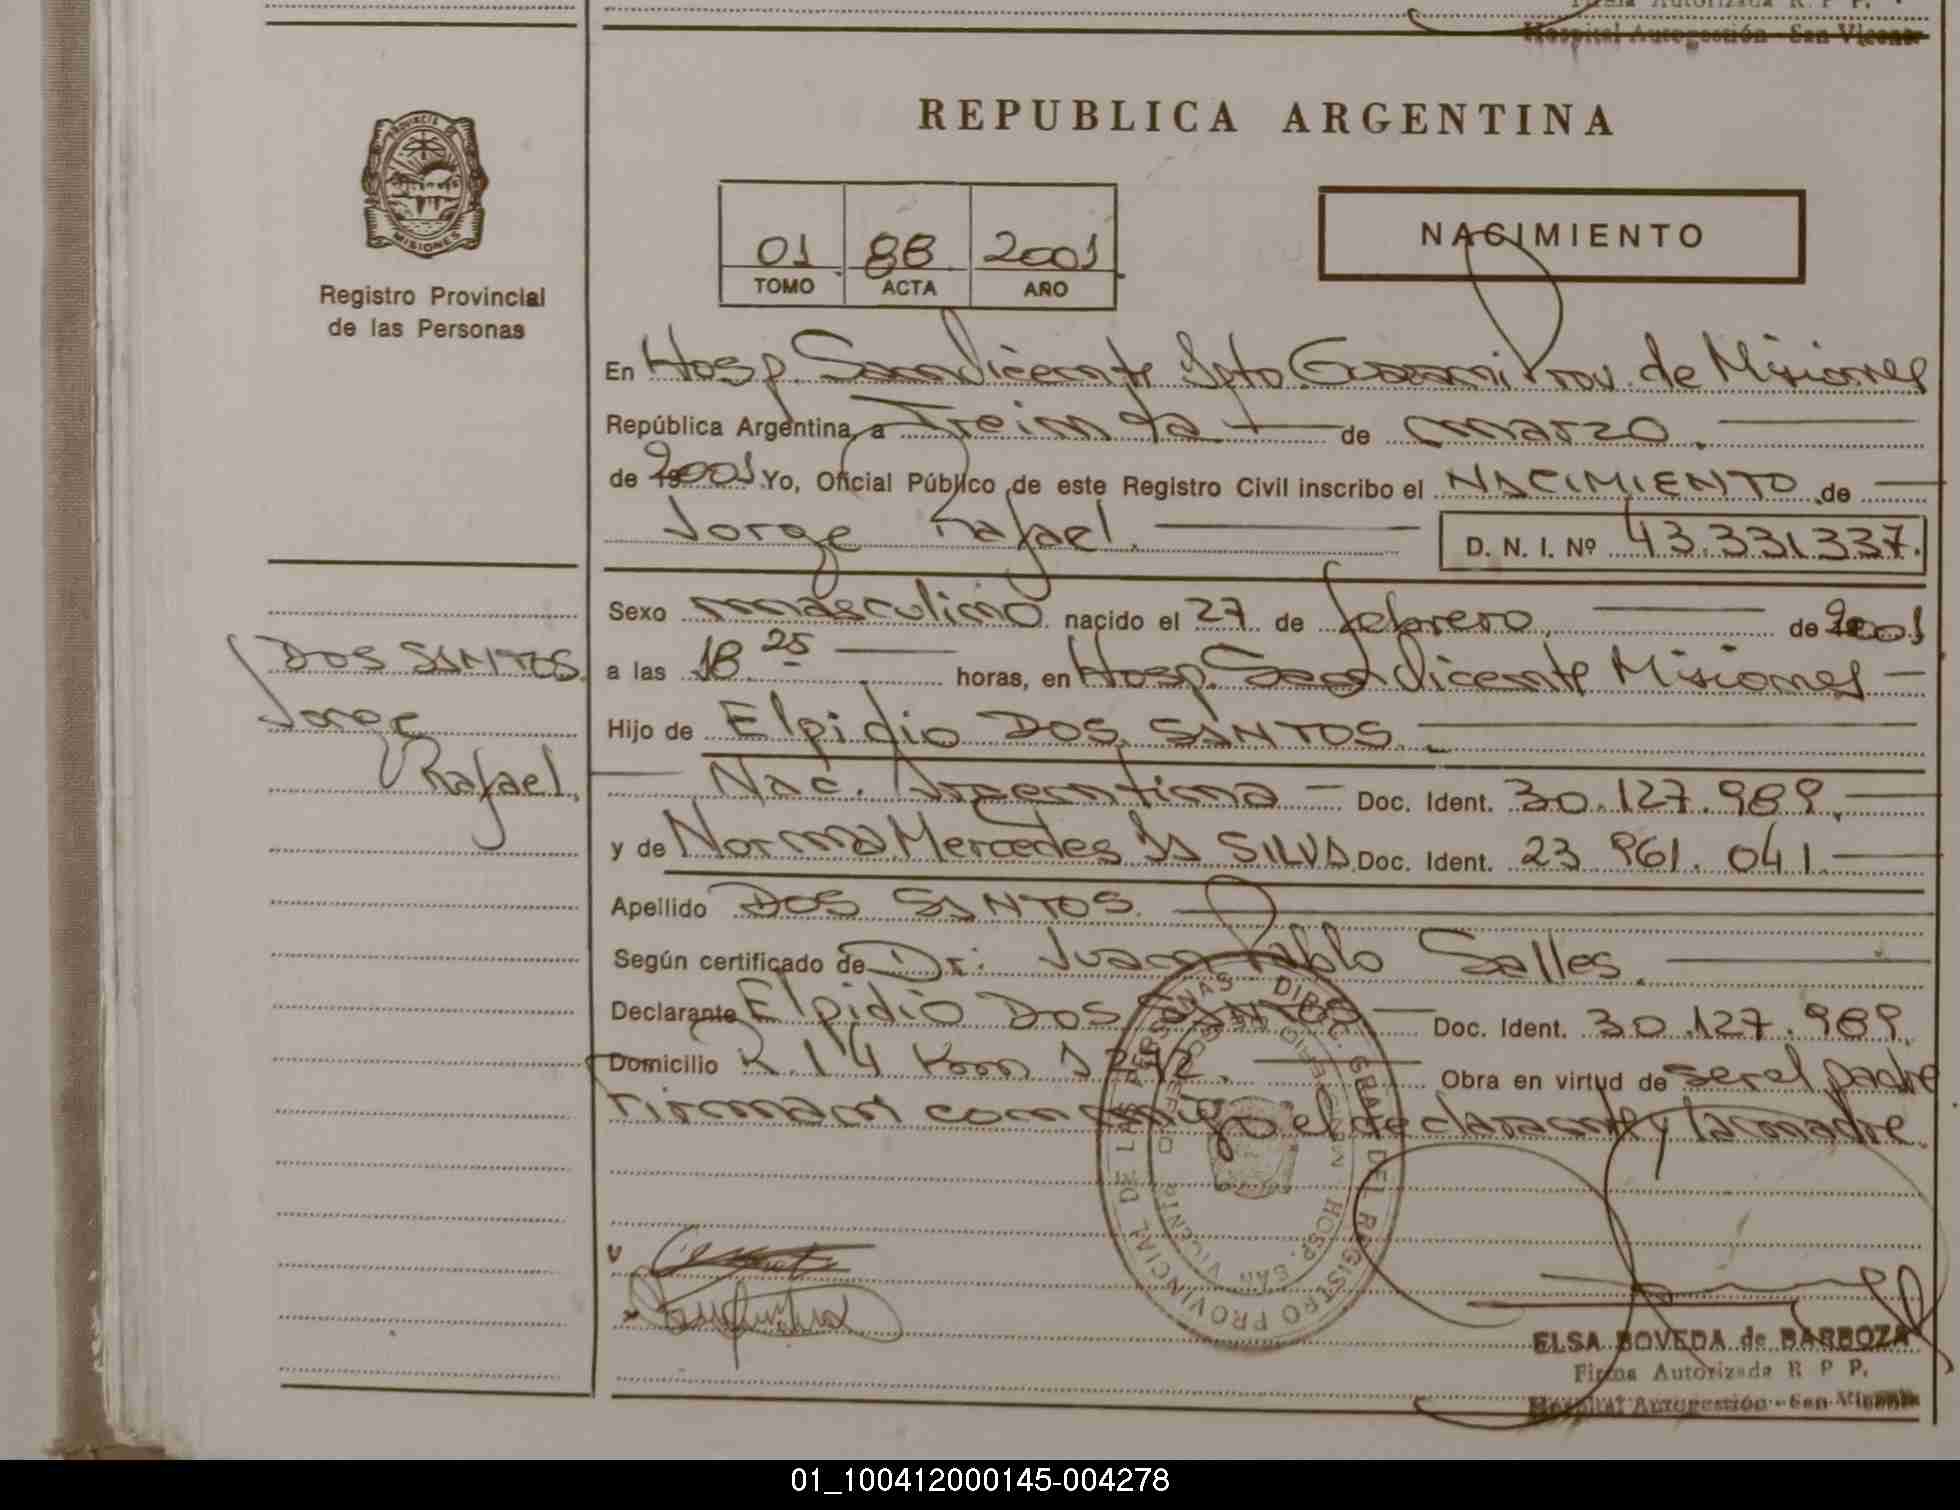 Firma Autorizada R P P.
Hospital Autogestión - San Vicente
PROVINCIA DE
MISIONES
Registro Provincial
de las Personas
REPUBLICA ARGENTINA
01 88 2001
TOMO ACTA AÑO
NACIMIENTO
En Hosp. San Vicente Dpto. Guarani Prov. de Misiones
República Argentina, a Treinta de marzo.
de 2001 Yo, Oficial Público de este Registro Civil inscribo el NACIMIENTO de
Jorge Rafael. D. N. I. Nº 43.331.337.
Sexo masculino nacido el 27 de febrero de 2001
DOS SANTOS
Jorge
Rafael.
a las 18 25 horas, en Hosp. San Vicente Misiones
Hijo de Elpidio DOS SANTOS.
Nac. Argentina Doc. Ident. 30.127.989.
y de Norma Mercedes DA SILVA. Doc. Ident. 23 961. 041.
Apellido DOS SANTOS.
Según certificado de Dr. Juan Pablo Salles.
Declarante Elpidio DOS SANTOS Doc. Ident. 30.127.989.
Domicilio R. 14 Km 1242. Obra en virtud de ser el padre
Firman conmigo el declarante y la madre.
DIREC. GRAL. DEL REGISTRO PROVINCIAL DE LAS PERSONAS
HOSP. SAN VICENTE
ELSA BOVEDA de BARBOZA
Firma Autorizada R P P.
Hospital Autogestión - San Vicente
01_100412000145-004278